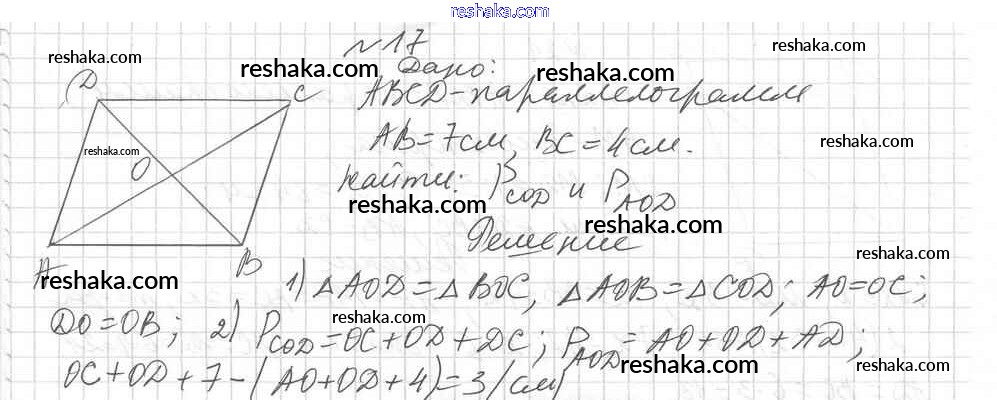 reshaka.com
№17
Дано:
ABCD-параллелограмм
AB=7см, BC=4см.
Найти: P_COD и P_AOD
Решение
D C
O
A B
1) △AOD=△BOC, △AOB=△COD; AO=OC;
DO=OB; 2) P_COD=OC+OD+DC; P_AOD=AO+OD+AD;
OC+OD+7-(AO+OD+4)=3(см)
reshaka.com
reshaka.com
reshaka.com
reshaka.com
reshaka.com
reshaka.com
reshaka.com
reshaka.com
reshaka.com
reshaka.com
reshaka.com
reshaka.com
reshaka.com